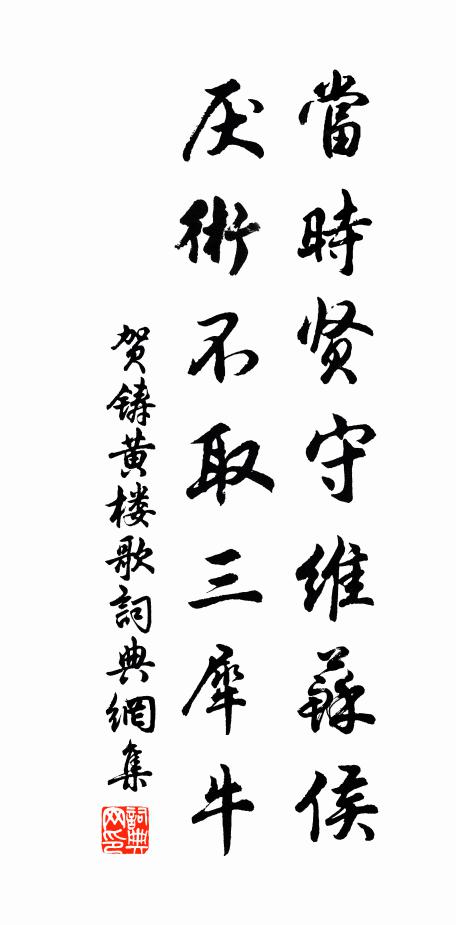 當時贤守维蘇侯
厌術不取三犀牛
贺鑄黄楼歌詞典網集
詞典网印